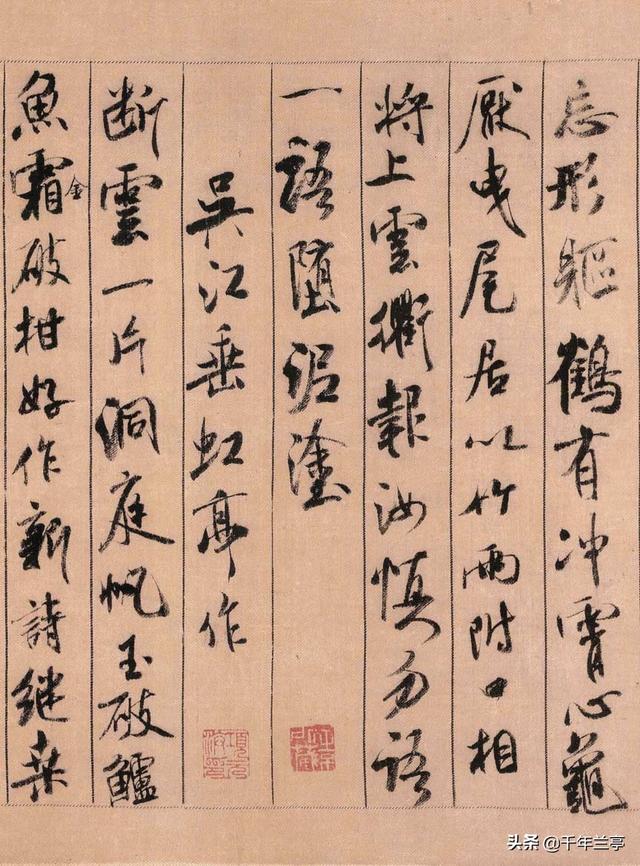 忘形軀鶴有冲霄心龜
厭曳尾居以竹兩附口相
將上雲衢報汝慎勿語
一語堕泥塗
吳江垂虹亭作
断雲一片洞庭帆玉破鱸
魚霜金破柑好作新詩继桑
头条 @千年兰亭